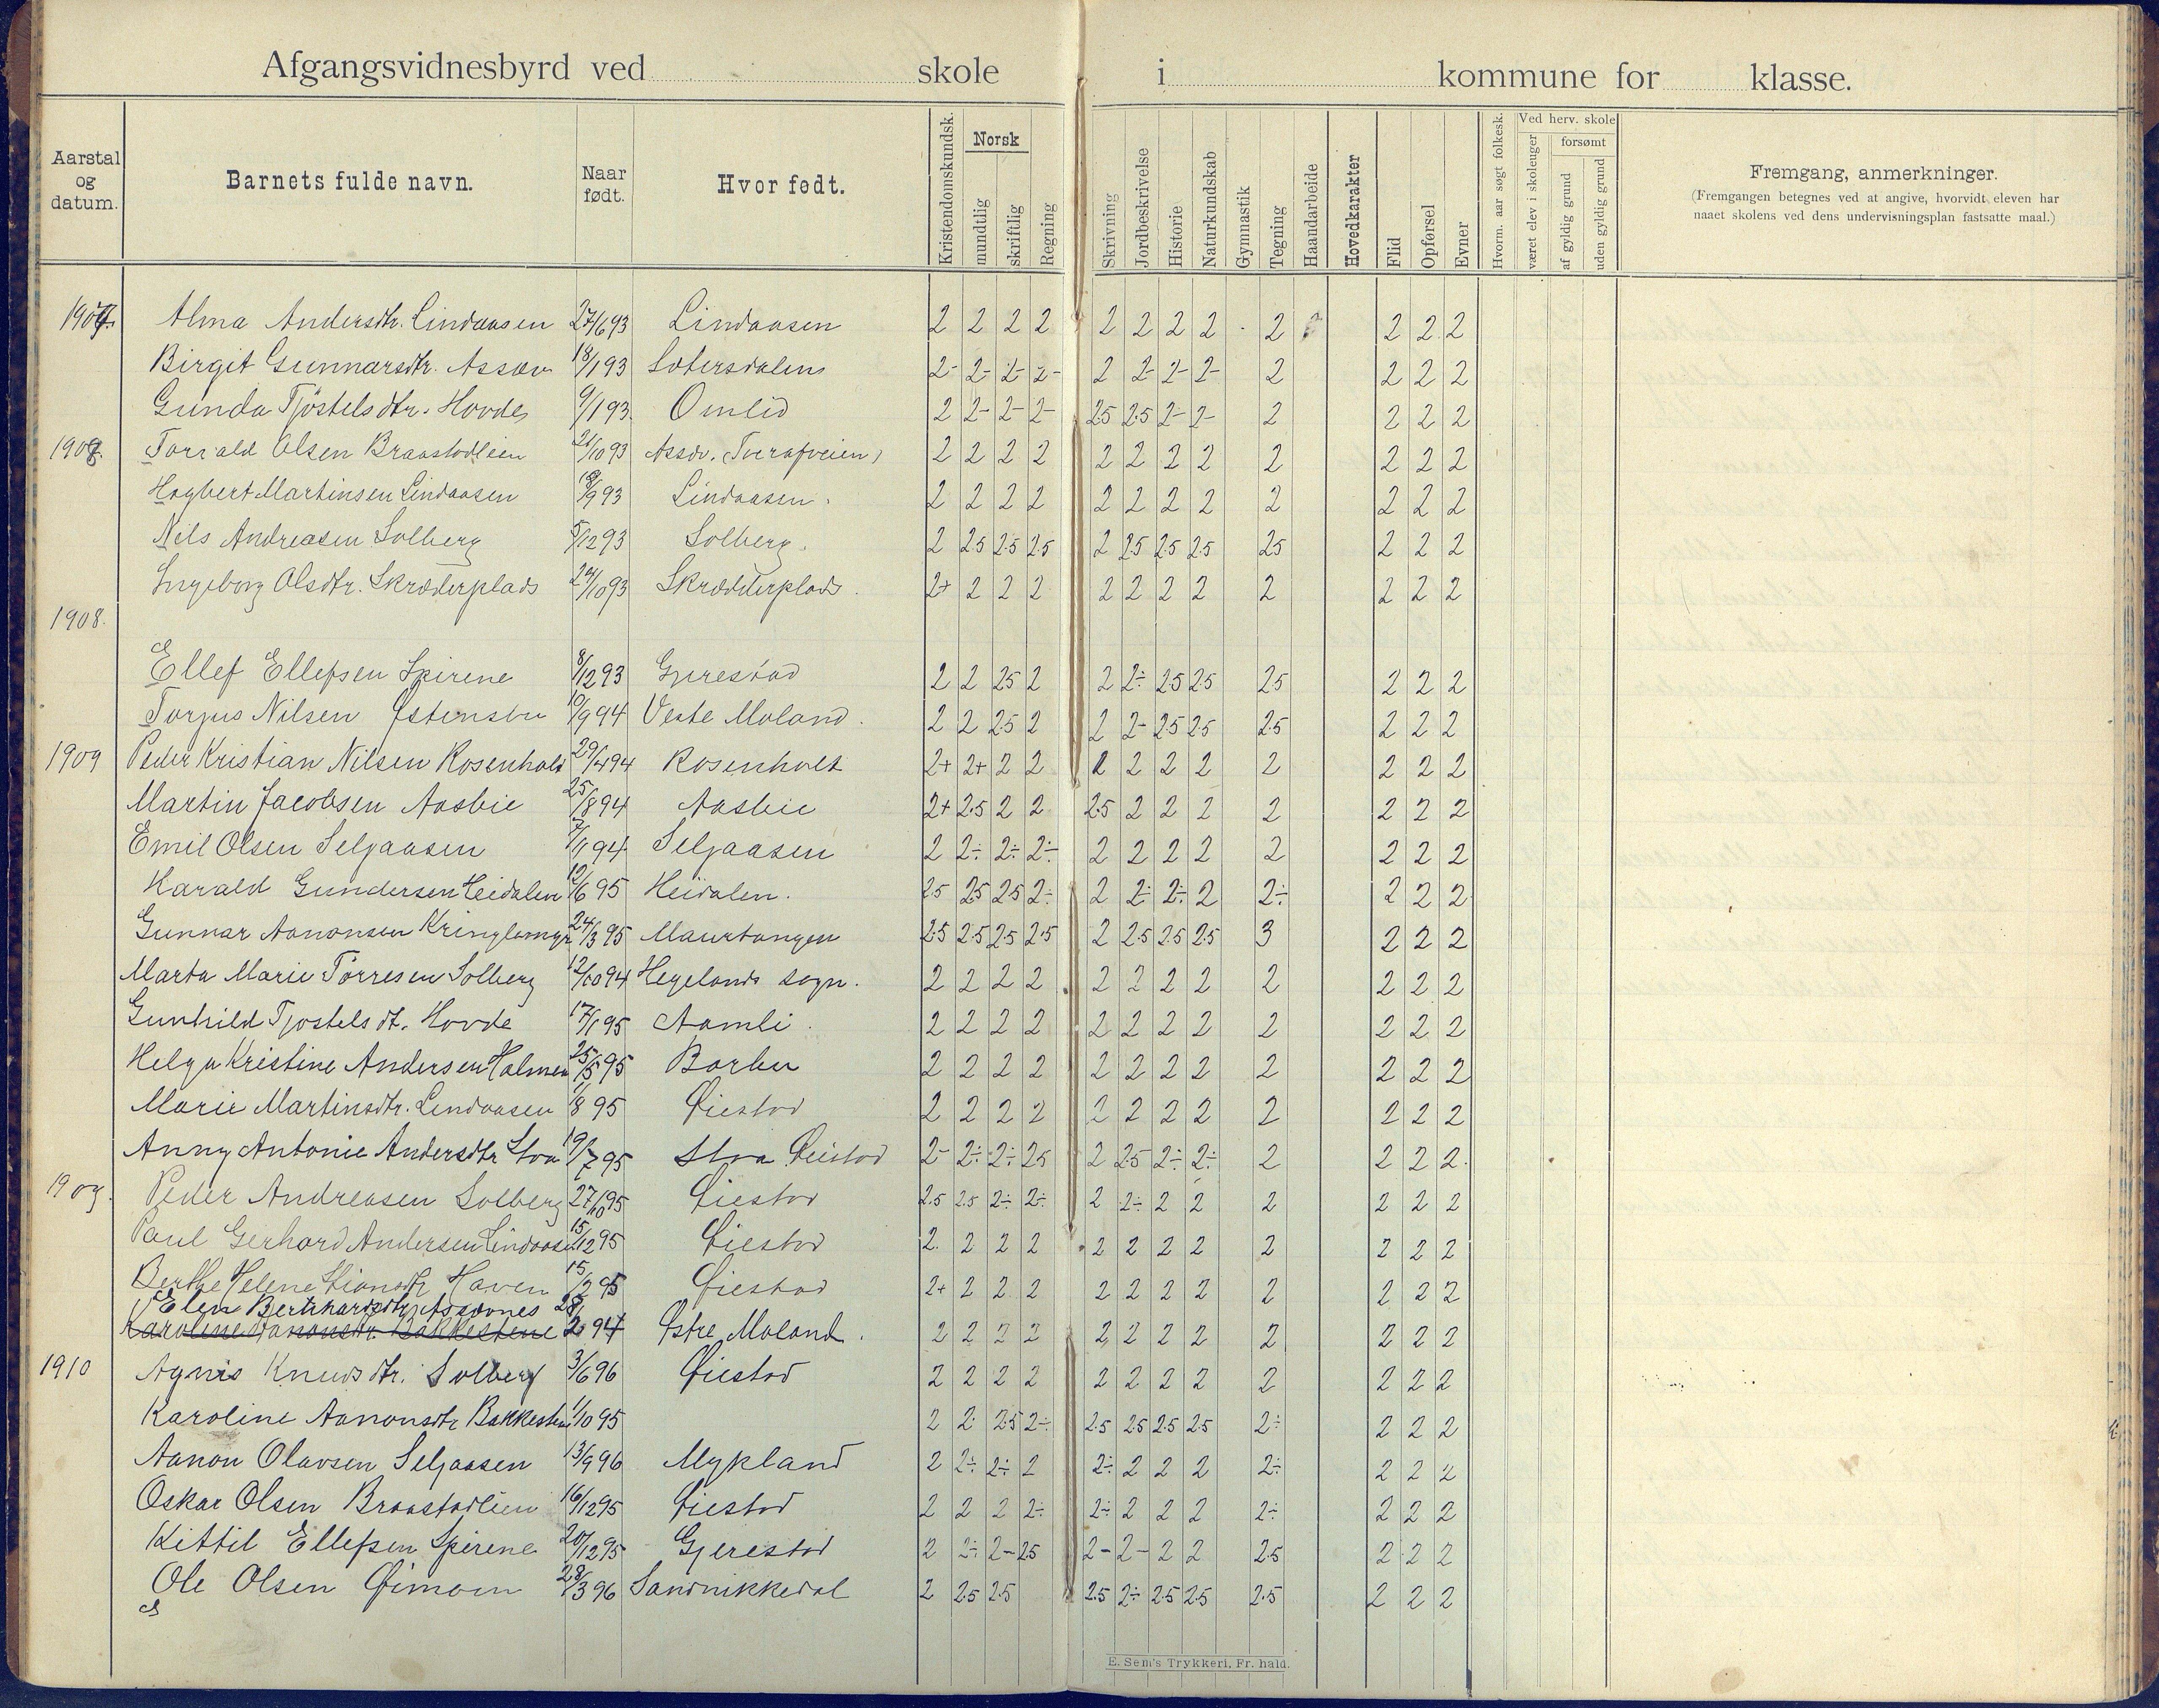 Afgangsvidnesbyrd ved skole i kommune for klasse.
Aarstal og datum. Barnets fulde navn. Naar født. Hvor født. Kristendomskundsk. Norsk mundtlig skriftlig Regning Skrivning Jordbeskrivelse Historie Naturkundskab Gymnastik Tegning Haandarbeide Hovedkarakter Flid Opførsel Evner Hvorm. aar søgt folkesk. Ved herv. skole været elev i skoleuger forsømt af gyldig grund uden gyldig grund Fremgang, anmerkninger.
(Fremgangen betegnes ved at angive, hvorvidt eleven har
naaet skolens ved dens undervisningsplan fastsatte maal.)
1907. Alma Andersdtr. Lindaasen 27/6 93 Lindaasen 2 2 2 2 2 2 2 2 2 2 2 2
Birgit Gunnarsdtr. Assæv 18/1 93 Sætersdalens 2- 2- 2- 2- 2 2- 2- 2- 2 2 2 2
Gunda Tjøstelsdtr. Hovde 9/1 93 Omlid 2 2- 2- 2- 2.5 2.5 2- 2- 2 2 2 2
1908. Torvald Olsen Braastadlien 21/10 93 2 2 2 2 2 2 2 2 2 2 2 2
Hagbert Martinsen Lindaasen 18/9 93 Lindaasen. 2 2 2 2 2 2 2 2 2 2 2 2
Nils Andreasen Solberg 5/12 93 Solberg. 2 2.5 2.5 2.5 2 2.5 2.5 2.5 2.5 2 2 2
Ingeborg Olsdtr. Skræderplads 24/10 93 Skrædderplads. 2+ 2 2 2 2 2 2 2 2 2 2 2
1908.
Ellef Ellefsen Spirene 8/12 93 Gjerestad 2 2 2.5 2 2 2÷ 2.5 2.5 2.5 2 2 2
Torjus Nilsen Østensbu 10/9 94 Vestre Moland. 2 2 2.5 2 2 2- 2.5 2.5 2.5 2 2 2
1909 Peder Kristian Nilsen Rosenholt 29/4 94 Rosenholt 2+ 2+ 2 2 2 2 2 2 2 2 2 2
Martin Jacobsen Aasbie 25/8 94 Aasbie 2+ 2.5 2 2 2.5 2 2 2 2 2 2 2
Emil Olsen Seljaasen 7/1 94 Seljaasen 2 2÷ 2÷ 2÷ 2 2 2 2 2 2 2 2
Harald Gundersen Heidalen 12/6 95 Heidalen. 2.5 2.5 2.5 2÷ 2 2÷ 2÷ 2 2÷ 2 2 2
Gunnar Aanonsen Kringlemyr 24/3 95 Maurtangen 2.5 2.5 2.5 2.5 2 2.5 2.5 2.5 3 2 2 2
Marta Marie Torresen Solberg 12/10 94 Hegelands sogn. 2 2 2 2 2 2 2 2 2 2 2 2
Gunhild Tjostelsdt. Hovde 17/1 95 Aamli. 2 2 2 2 2 2 2 2 2 2 2 2
Helga Kristine Andersen Holmen 25/5 95 Barbu 2 2 2 2 2 2 2 2 2 2 2 2
Marie Martinsdtr. Lindaasen 1/8 95 Øiestad 2 2 2 2 2 2 2 2 2 2 2 2
Anny Antonie Andersdtr Stoa 19/7 95 Stoa Øiestad 2- 2÷ 2÷ 2.5 2 2.5 2÷ 2÷ 2 2 2 2.
1909. Peder Andreasen Solberg 27/10 95 Øiestad 2.5 2.5 2÷ 2÷ 2 2÷ 2 2 2 2 2 2
Paul Gerhard Andersen Lindaasen 15/12 95 Øiestad 2. 2 2 2 2 2 2 2 2 2 2 2
Berthe Helene Haven 15/2 95 Øiestad 2+ 2 2 2 2 2 2 2 2 2 2 2
Elen Bernhardsdtr Assævnes 28/
Karoline Aanonsdtr. Bakkestene 2 94 Østre Moland. 2 2 2 2 2 2 2 2 2 2 2 2
1910 Agnes Knudsdtr. Solberg 3/6 96 Øiestad 2 2 2 2 2 2 2 2 2 2 2 2
Karoline Aanonsdtr Bakkesten 1/10 95 2 2. 2.5 2÷ 2.5 2.5 2.5 2.5 2÷ 2 2 2
Aanon Olavsen Seljaasen 13/9 96 Mykland 2 2÷ 2÷ 2 2÷ 2 2 2 2÷ 2 2 2
Oskar Olsen Braastadlien 16/12 95 Øiestad 2 2 2 2÷ 2÷ 2 2 2 2÷ 2 2 2
Kittil Ellefsen Spirene 20/12 95 Gjerestad 2 2÷ 2- 2.5 2- 2- 2 2 2.5 2 2 2
Ole Olsen Øimoen 28/3 96 Sandnikkedal 2 2.5 2.5 2.5 2÷ 2.5 2.5 2.5 2 2 2
E. Sem's Trykkeri, Fr. hald.